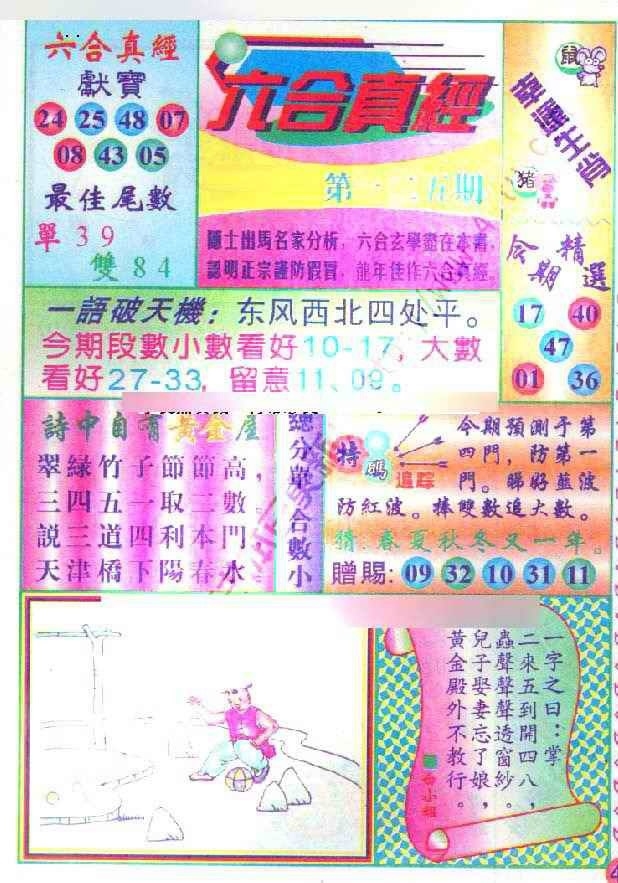 六合真經
獻寶
24 25 48 07
08 43 05
最佳尾數
單 3 9
雙 8 4
六合真經
第一二五期
隱士出馬名家分析，六合玄學盡在本書，
認明正宗謹防假冒，龍年佳作六合真經。
鼠
幸運生肖
豬
今期精選
17 40
47
01 36
一語破天機：东风西北四处平。
今期段數小數看好10-17，大數
看好27-33，留意11、09。
詩中自有黃金屋
翠綠竹子節節高，
三四五一取二數。
説三道四利本門
天津橋下陽春水
總分單合數小
特碼追踪
今期預測于第
四門，防第一
門。睇好藍波
防紅波。捧雙數追大數。
猜：春夏秋冬又一年。
贈賜：09 32 10 31 11
一字之曰：掌
二來五到開四八，
蟲聲聲聲透窗紗。
兒子娶妻忘了娘，
黃金殿外不教行。
4